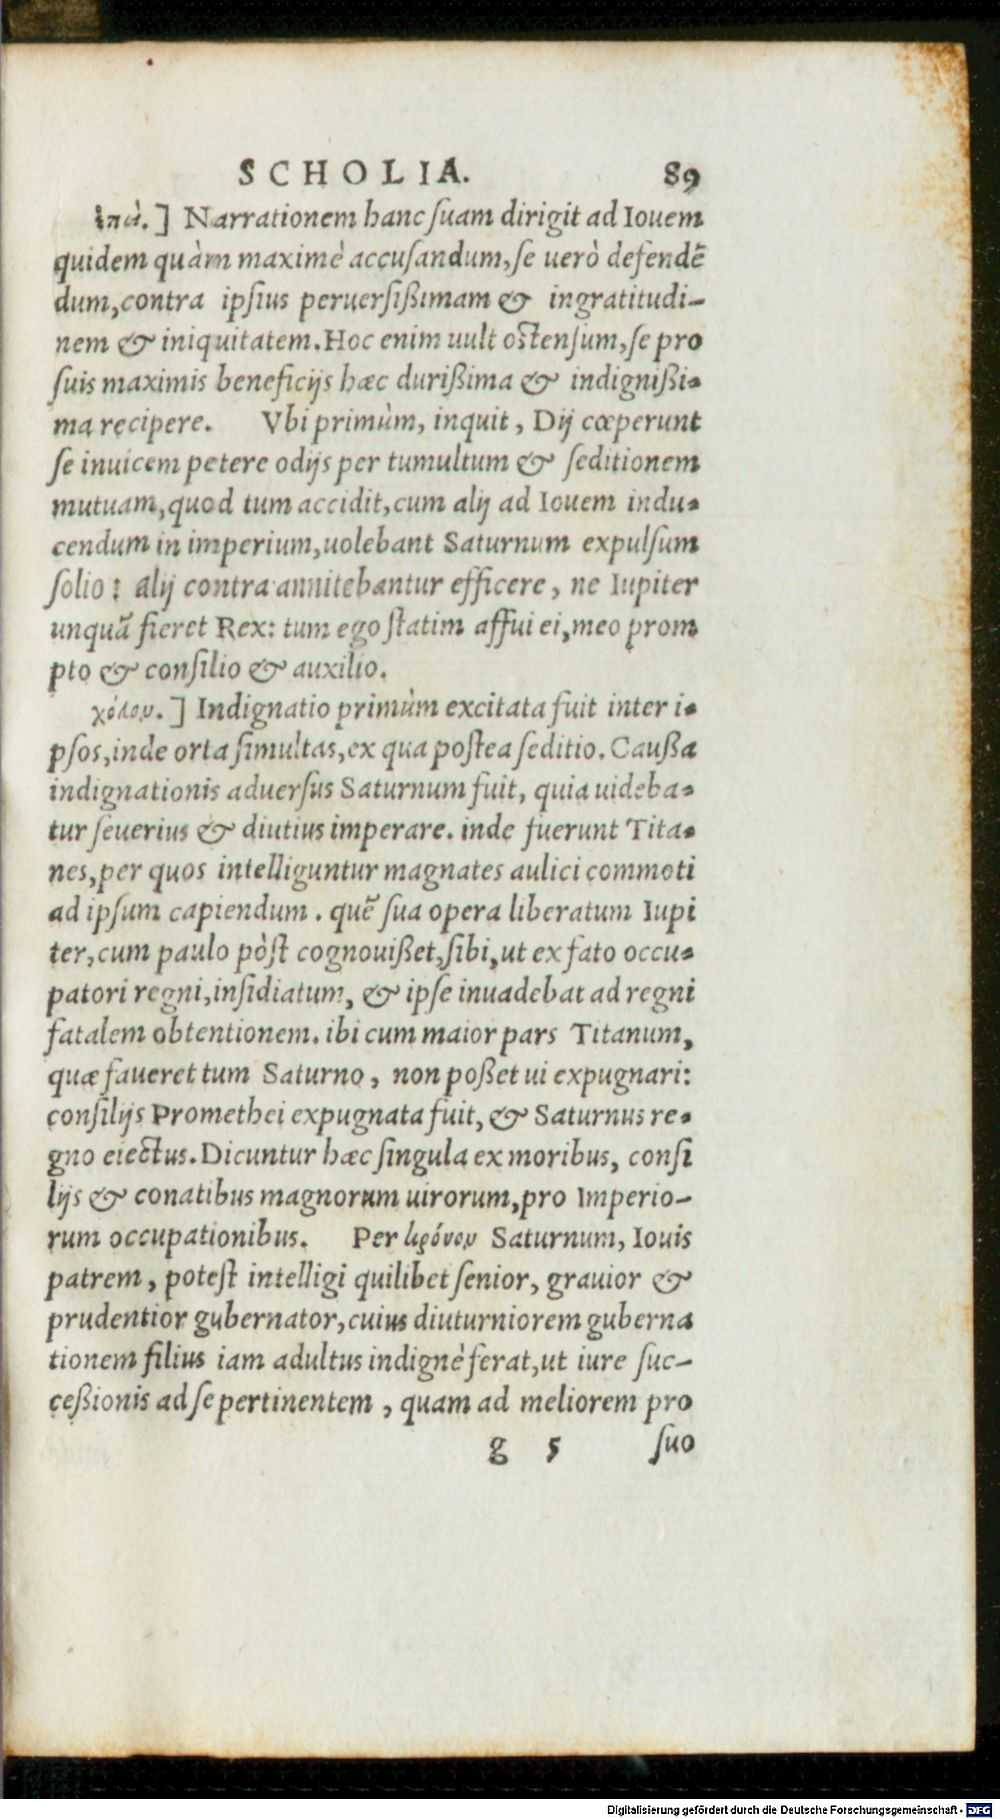 SCHOLIA. 89
ἐπεὶ.] Narrationem hanc suam dirigit ad Iouem
quidem quàm maximè accusandum, se uerò defendē
dum, contra ipsius peruersißimam & ingratitudi-
nem & iniquitatem. Hoc enim uult ostensum, se pro
suis maximis beneficijs hæc durißima & indignißi-
ma recipere. Vbi primùm, inquit, Dij cœperunt
se inuicem petere odijs per tumultum & seditionem
mutuam, quod tum accidit, cum alij ad Iouem indu-
cendum in imperium, uolebant Saturnum expulsum
solio: alij contra annitebantur efficere, ne Iupiter
unquã fieret Rex: tum ego statim affui ei, meo prom
pto & consilio & auxilio.
χόλου.] Indignatio primùm excitata fuit inter i-
psos, inde orta simultas, ex qua postea seditio. Caußa
indignationis aduersus Saturnum fuit, quia uideba-
tur seuerius & diutius imperare. inde fuerunt Tita-
nes, per quos intelliguntur magnates aulici commoti
ad ipsum capiendum. quẽ sua opera liberatum Iupi
ter, cum paulo pòst cognouißet, sibi, ut ex fato occu-
patori regni, insidiatum, & ipse inuadebat ad regni
fatalem obtentionem. ibi cum maior pars Titanum,
quæ faueret tum Saturno, non poßet ui expugnari:
consilijs Promethei expugnata fuit, & Saturnus re-
gno eiectus. Dicuntur hæc singula ex moribus, consi
lijs & conatibus magnorum uirorum, pro Imperio-
rum occupationibus. Per κρόνον Saturnum, Iouis
patrem, potest intelligi quilibet senior, grauior &
prudentior gubernator, cuius diuturniorem guberna
tionem filius iam adultus indignè ferat, ut iure suc-
ceßionis ad se pertinentem, quam ad meliorem pro
g 5 suo
Digitalisierung gefördert durch die Deutsche Forschungsgemeinschaft - DFG